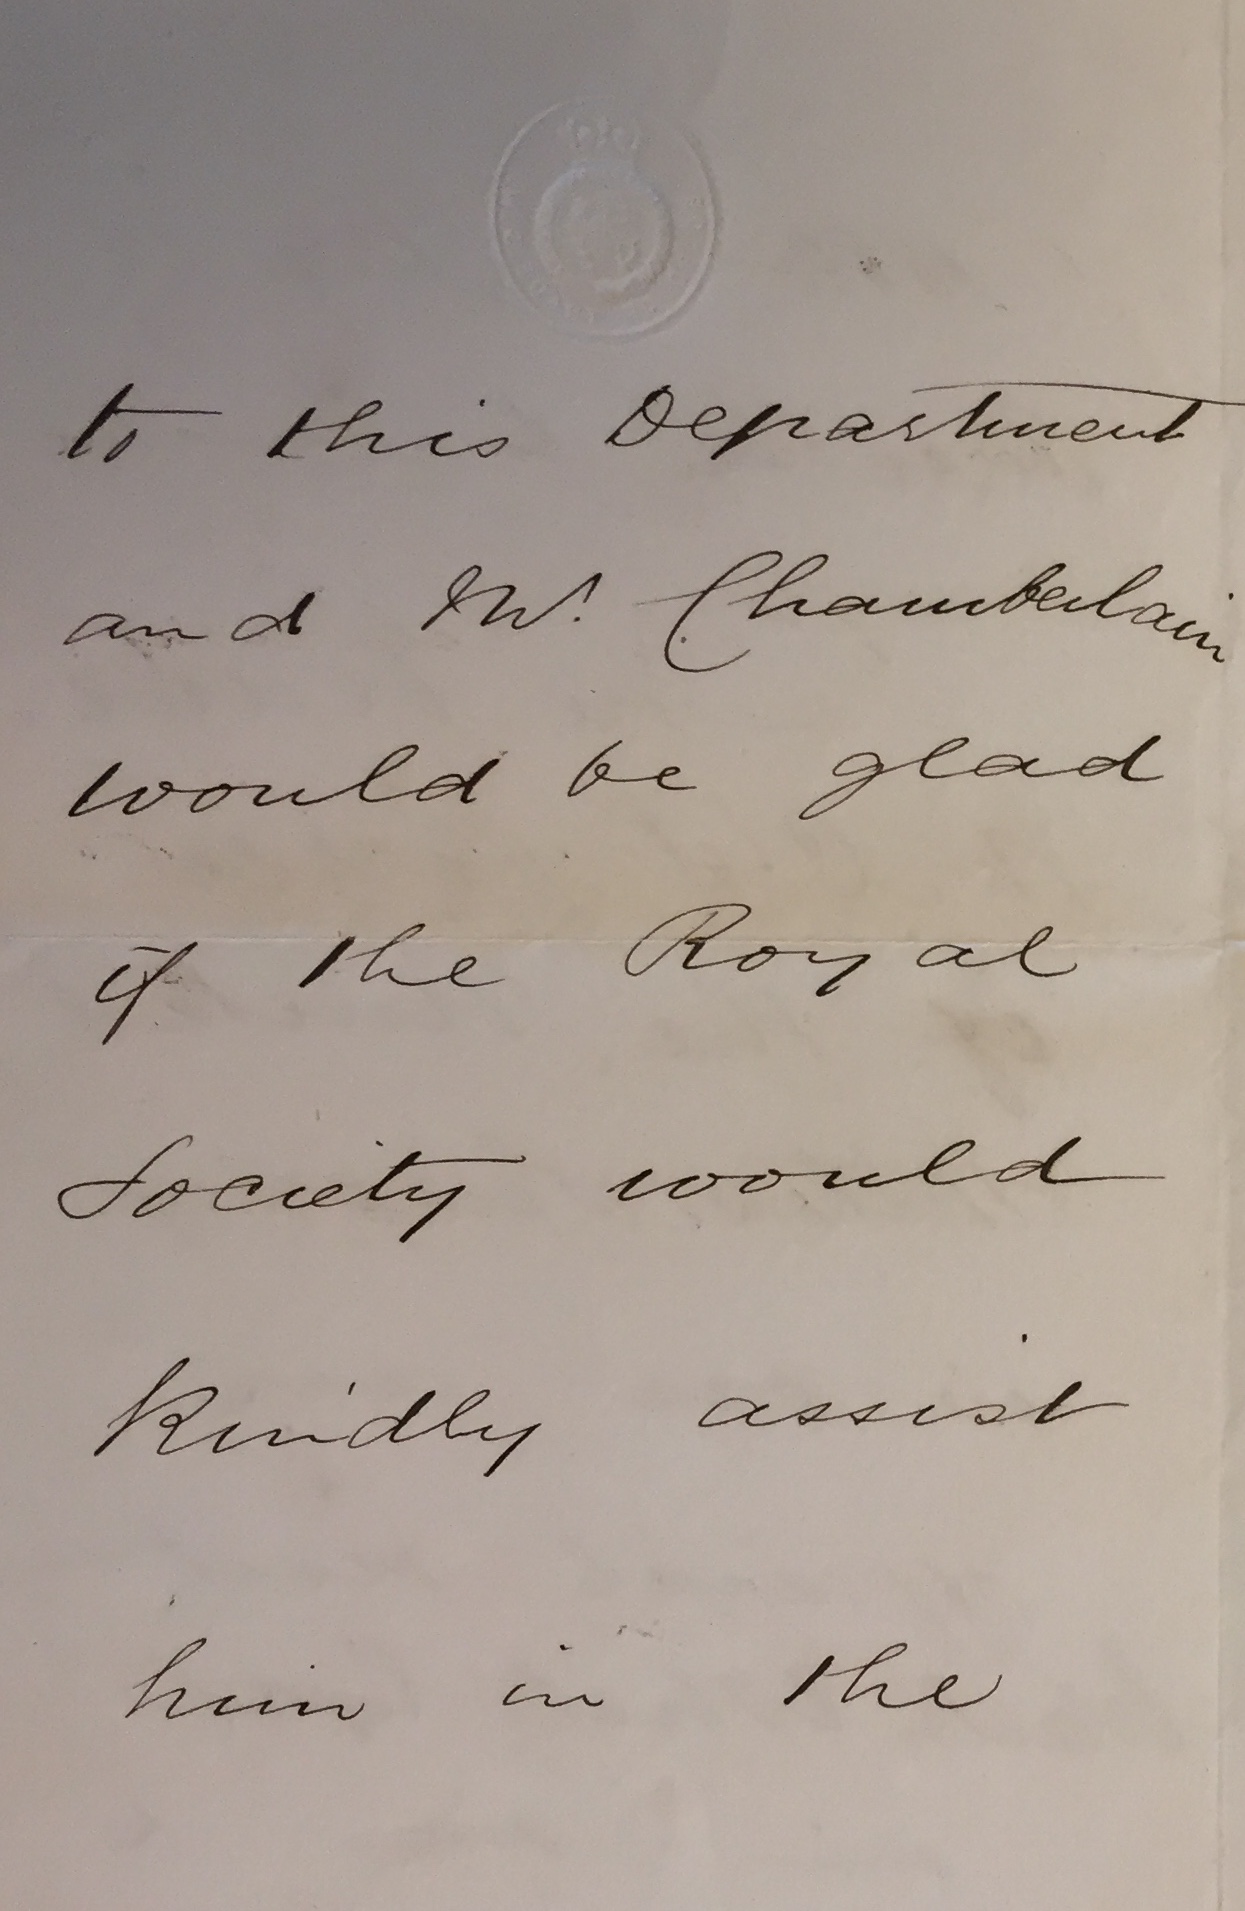 to this Department
and Mr. Chamberlain
would be glad
if the Royal
Society would
kindly assist
him in the